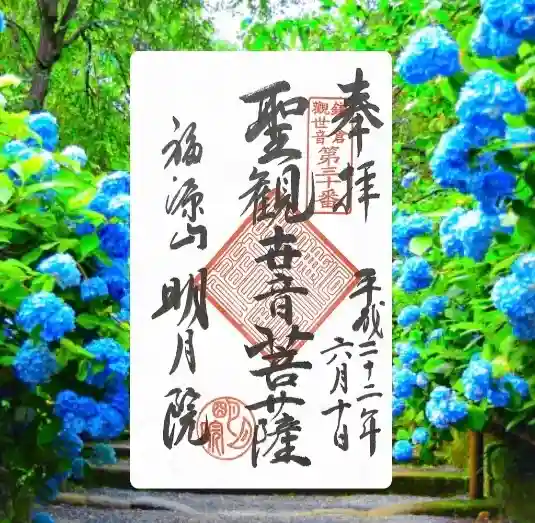 奉拝
鎌倉
觀世音
第三十番
平成二十二年
六月十日
聖観世音菩薩
福源山
明月院